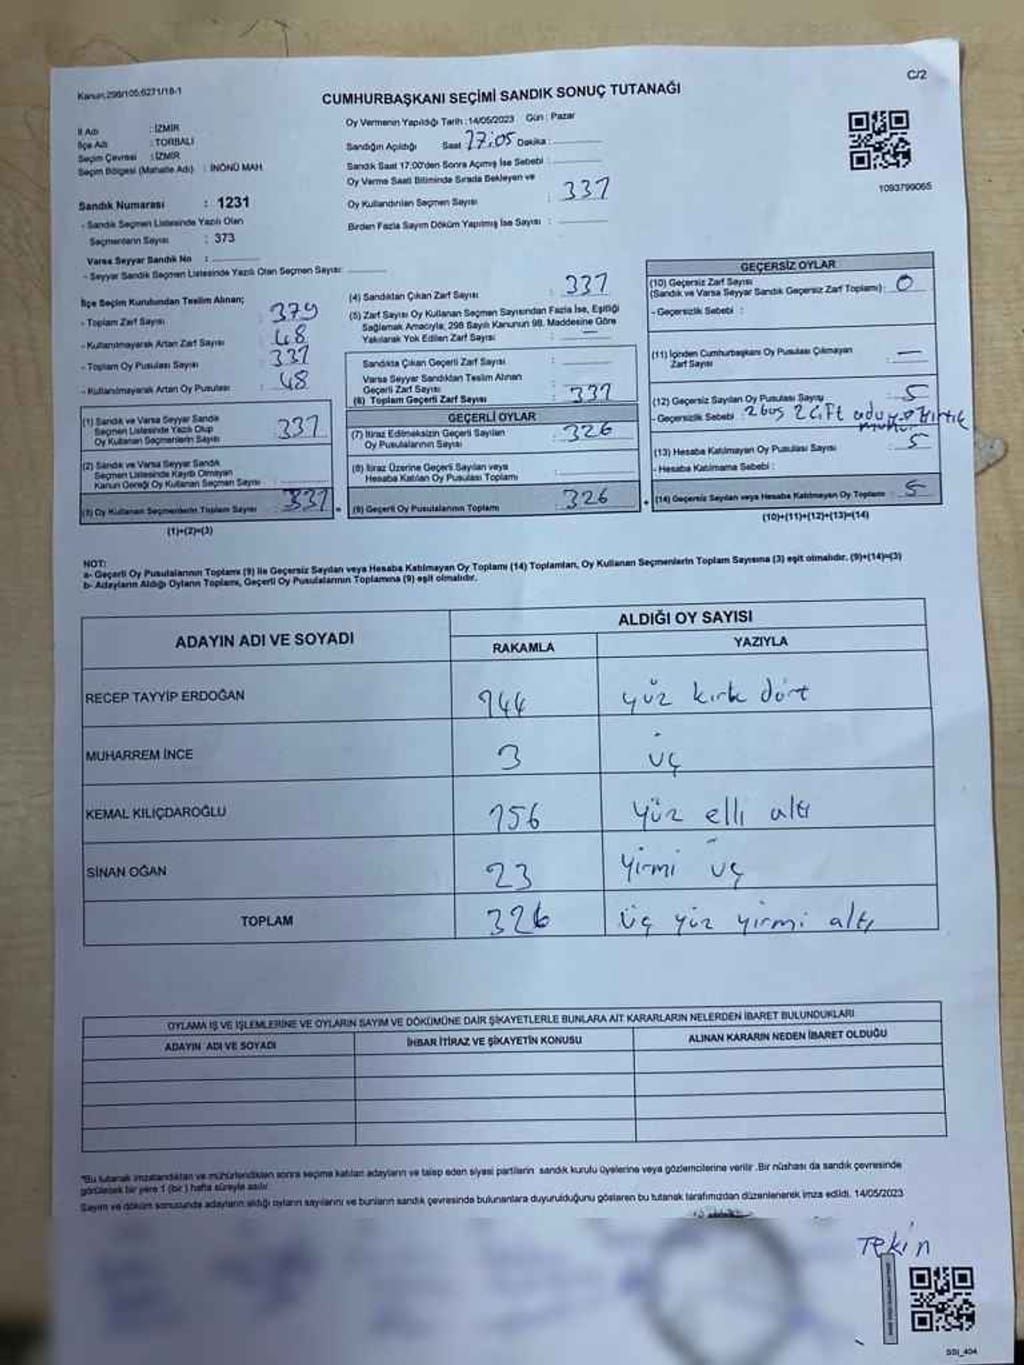 Kanun:298/105;6271/18-1
C/2
CUMHURBAŞKANI SEÇİMİ SANDIK SONUÇ TUTANAĞI
İl Adı : İZMİR
İlçe Adı : TORBALI
Seçim Çevresi : İZMİR
Seçim Bölgesi (Mahalle Adı) : İNÖNÜ MAH
Sandık Numarası : 1231
- Sandık Seçmen Listesinde Yazılı Olan
Seçmenlerin Sayısı : 373
Varsa Seyyar Sandık No :
- Seyyar Sandık Seçmen Listesinde Yazılı Olan Seçmen Sayısı:
Oy Vermenin Yapıldığı Tarih :14/05/2023 Gün : Pazar
Sandığın Açıldığı Saat 17:05 Dakika :
Sandık Saat 17:00'den Sonra Açımış İse Sebebi :
Oy Verme Saati Bitiminde Sırada Bekleyen ve
Oy Kullandırılan Seçmen Sayısı : 337
Birden Fazla Sayım Döküm Yapılmış İse Sayısı :
1093799065
İlçe Seçim Kurulundan Teslim Alınan;
- Toplam Zarf Sayısı : 379
- Kullanılmayarak Artan Zarf Sayısı : 48
- Toplam Oy Pusulası Sayısı : 337
- Kullanılmayarak Artan Oy Pusulası : 48
(1) Sandık ve Varsa Seyyar Sandık
Seçmen Listesinde Yazılı Olup
Oy Kullanan Seçmenlerin Sayısı : 337
(2) Sandık ve Varsa Seyyar Sandık
Seçmen Listesinde Kayıtlı Olmayan
Kanun Gereği Oy Kullanan Seçmen Sayısı :
(3) Oy Kullanan Seçmenlerin Toplam Sayısı : 337
(1)+(2)=(3)
(4) Sandıktan Çıkan Zarf Sayısı : 337
(5) Zarf Sayısı Oy Kullanan Seçmen Sayısından Fazla İse, Eşitliği
Sağlamak Amacıyla, 298 Sayılı Kanunun 98. Maddesine Göre
Yakılarak Yok Edilen Zarf Sayısı : —
Sandıkta Çıkan Geçerli Zarf Sayısı :
Varsa Seyyar Sandıktan Teslim Alınan
Geçerli Zarf Sayısı :
(6) Toplam Geçerli Zarf Sayısı : 337
GEÇERLİ OYLAR
(7) İtiraz Edilmeksizin Geçerli Sayılan
Oy Pusulalarının Sayısı : 326
(8) İtiraz Üzerine Geçerli Sayılan veya
Hesaba Katılan Oy Pusulası Toplamı :
(9) Geçerli Oy Pusulalarının Toplamı : 326
GEÇERSİZ OYLAR
(10) Geçersiz Zarf Sayısı
(Sandık ve Varsa Seyyar Sandık Geçersiz Zarf Toplamı) : 0
- Geçersizlik Sebebi :
(11) İçinden Cumhurbaşkanı Oy Pusulası Çıkmayan
Zarf Sayısı : —
(12) Geçersiz Sayılan Oy Pusulası Sayısı : 5
- Geçersizlik Sebebi : 2 boş 2 çift
(13) Hesaba Katılmayan Oy Pusulası Sayısı : 5
- Hesaba Katılmama Sebebi :
(14) Geçersiz Sayılan veya Hesaba Katılmayan Oy Toplamı : 5
(10)+(11)+(12)+(13)=(14)
NOT:
a- Geçerli Oy Pusulalarının Toplamı (9) ile Geçersiz Sayılan veya Hesaba Katılmayan Oy Toplamı (14) Toplamları, Oy Kullanan Seçmenlerin Toplam Sayısına (3) eşit olmalıdır. (9)+(14)=(3)
b- Adayların Aldığı Oyların Toplamı, Geçerli Oy Pusulalarının Toplamına (9) eşit olmalıdır.
ADAYIN ADI VE SOYADI
ALDIĞI OY SAYISI
RAKAMLA YAZIYLA
RECEP TAYYİP ERDOĞAN 144 yüz kırk dört
MUHARREM İNCE 3 üç
KEMAL KILIÇDAROĞLU 156 yüz elli altı
SİNAN OĞAN 23 yirmi üç
TOPLAM 326 üç yüz yirmi altı
OYLAMA İŞ VE İŞLEMLERİNE VE OYLARIN SAYIM VE DÖKÜMÜNE DAİR ŞİKAYETLERLE BUNLARA AİT KARARLARIN NELERDEN İBARET BULUNDUKLARI
ADAYIN ADI VE SOYADI İHBAR İTİRAZ VE ŞİKAYETİN KONUSU ALINAN KARARIN NEDEN İBARET OLDUĞU
"Bu tutanak imzalandıktan ve mühürlendikten sonra seçime katılan adayların ve talep eden siyasi partilerin sandık kurulu üyelerine veya gözlemcilerine verilir .Bir nüshası da sandık çevresinde
görülecek bir yere 1 (bir ) hafta süreyle asılır.
Sayım ve döküm sonusunda adayların aldığı oyların sayılarını ve bunların sandık çevresinde bulunanlara duyurulduğunu gösteren bu tutanak tarafımızdan düzenlenerek imza edildi. 14/05/2023
Tekin
SSI_404